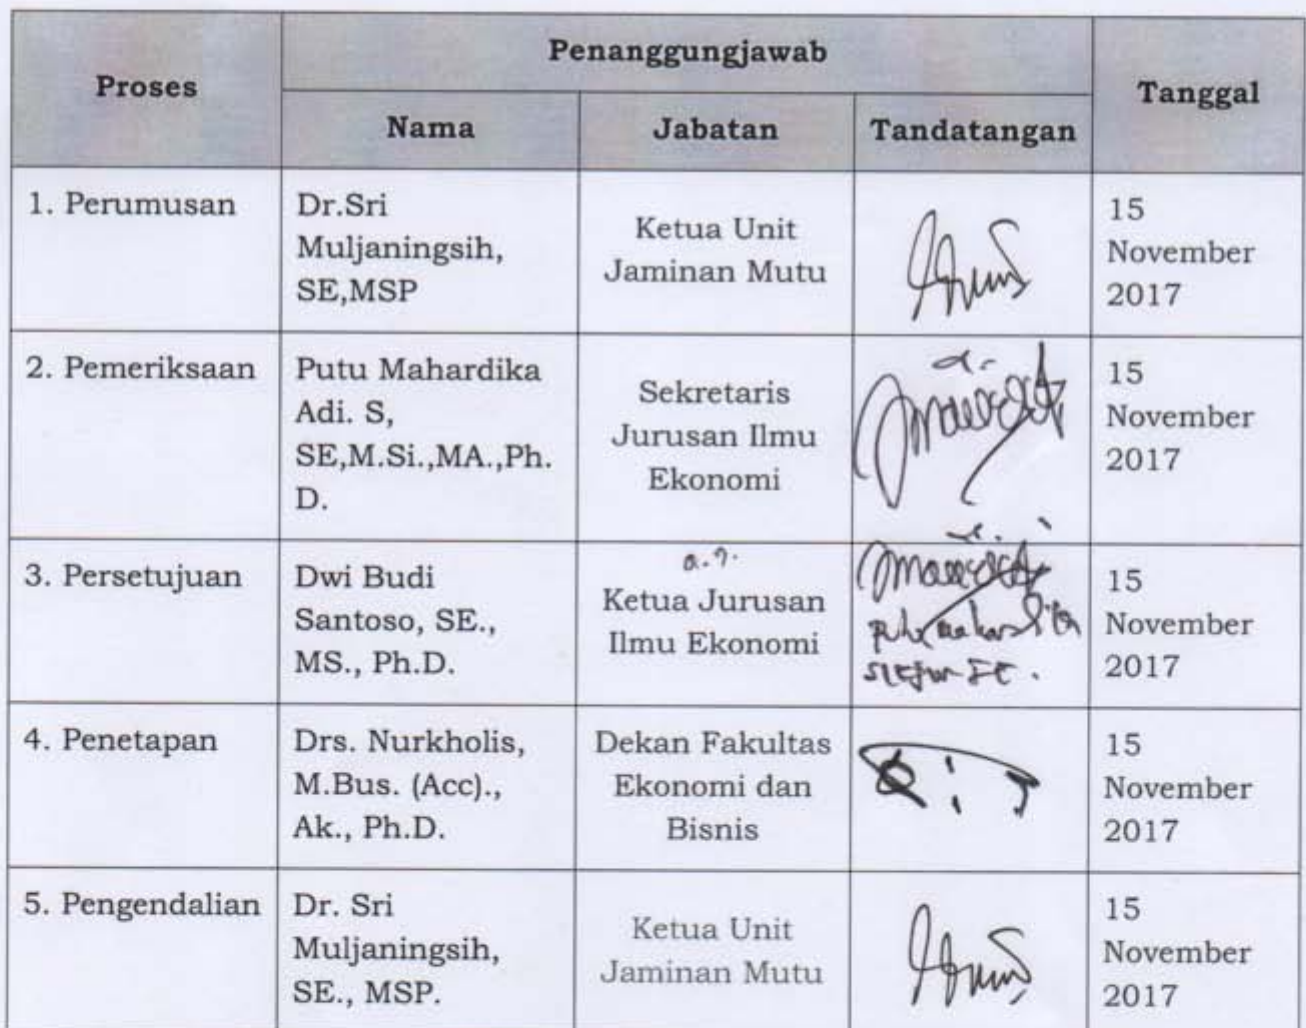 Proses
Penanggungjawab
Tanggal
Nama
Jabatan
Tandatangan
1. Perumusan
Dr.Sri
Muljaningsih,
SE,MSP
Ketua Unit
Jaminan Mutu
15
November
2017
2. Pemeriksaan
Putu Mahardika
Adi. S,
SE,M.Si.,MA.,Ph.
D.
Sekretaris
Jurusan Ilmu
Ekonomi
15
November
2017
3. Persetujuan
Dwi Budi
Santoso, SE.,
MS., Ph.D.
a.n.
Ketua Jurusan
Ilmu Ekonomi
15
November
2017
4. Penetapan
Drs. Nurkholis,
M.Bus. (Acc).,
Ak., Ph.D.
Dekan Fakultas
Ekonomi dan
Bisnis
15
November
2017
5. Pengendalian
Dr. Sri
Muljaningsih,
SE., MSP.
Ketua Unit
Jaminan Mutu
15
November
2017